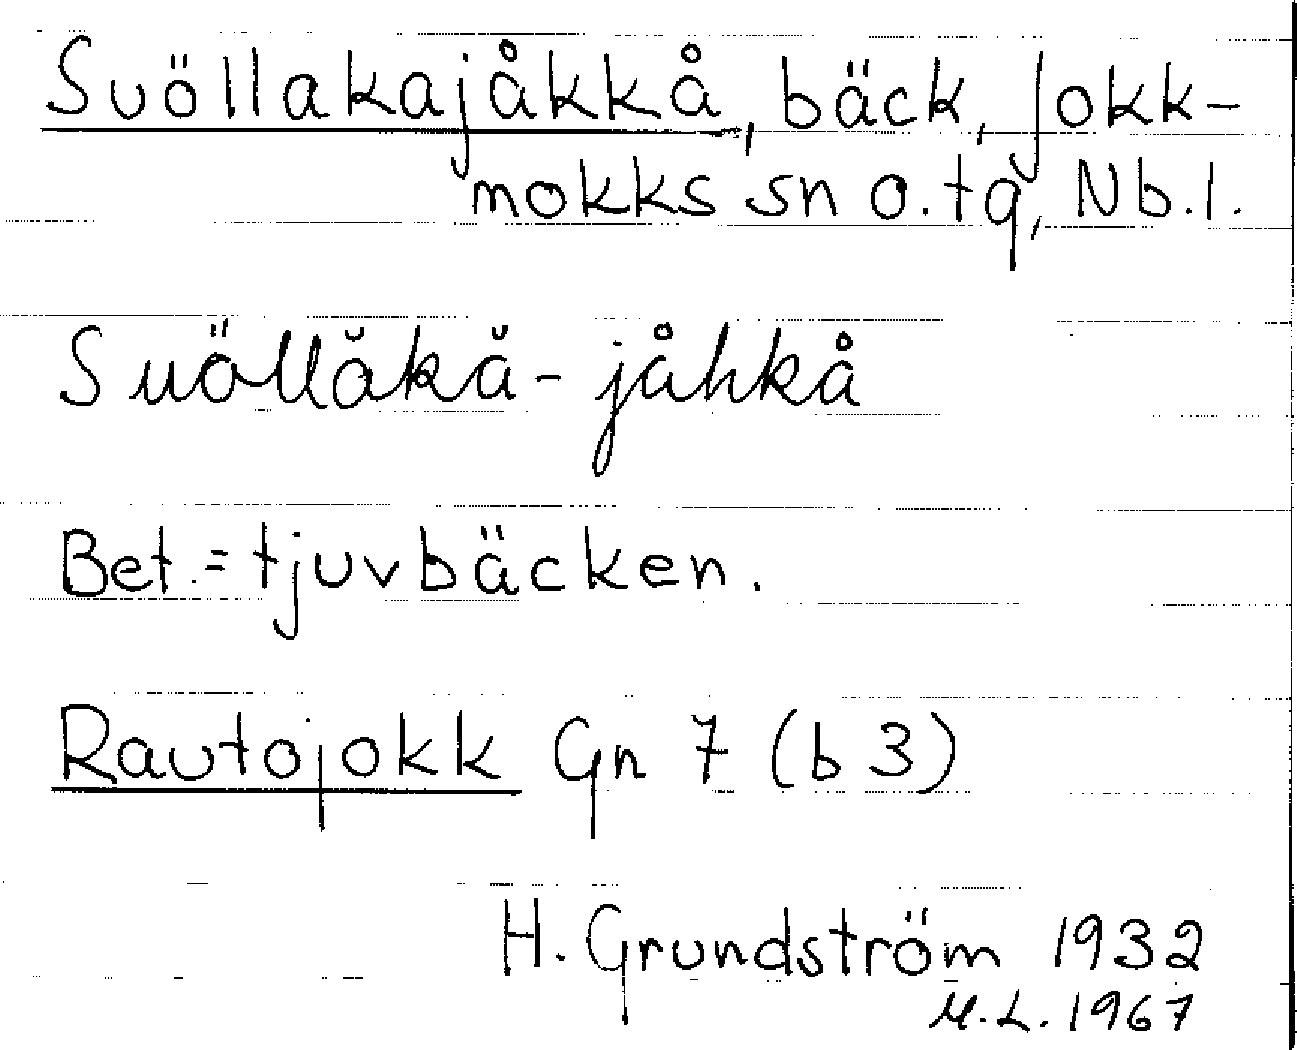 Suöllakajåkkå, bäck, Jokk-
mokks sn o. tg, Nb. l.
Suöllăkă-jåhkå
Bet. = tjuvbäcken.
Rautojokk Gn 7 (b 3)
H. Grundström 1932
M. L. 1967